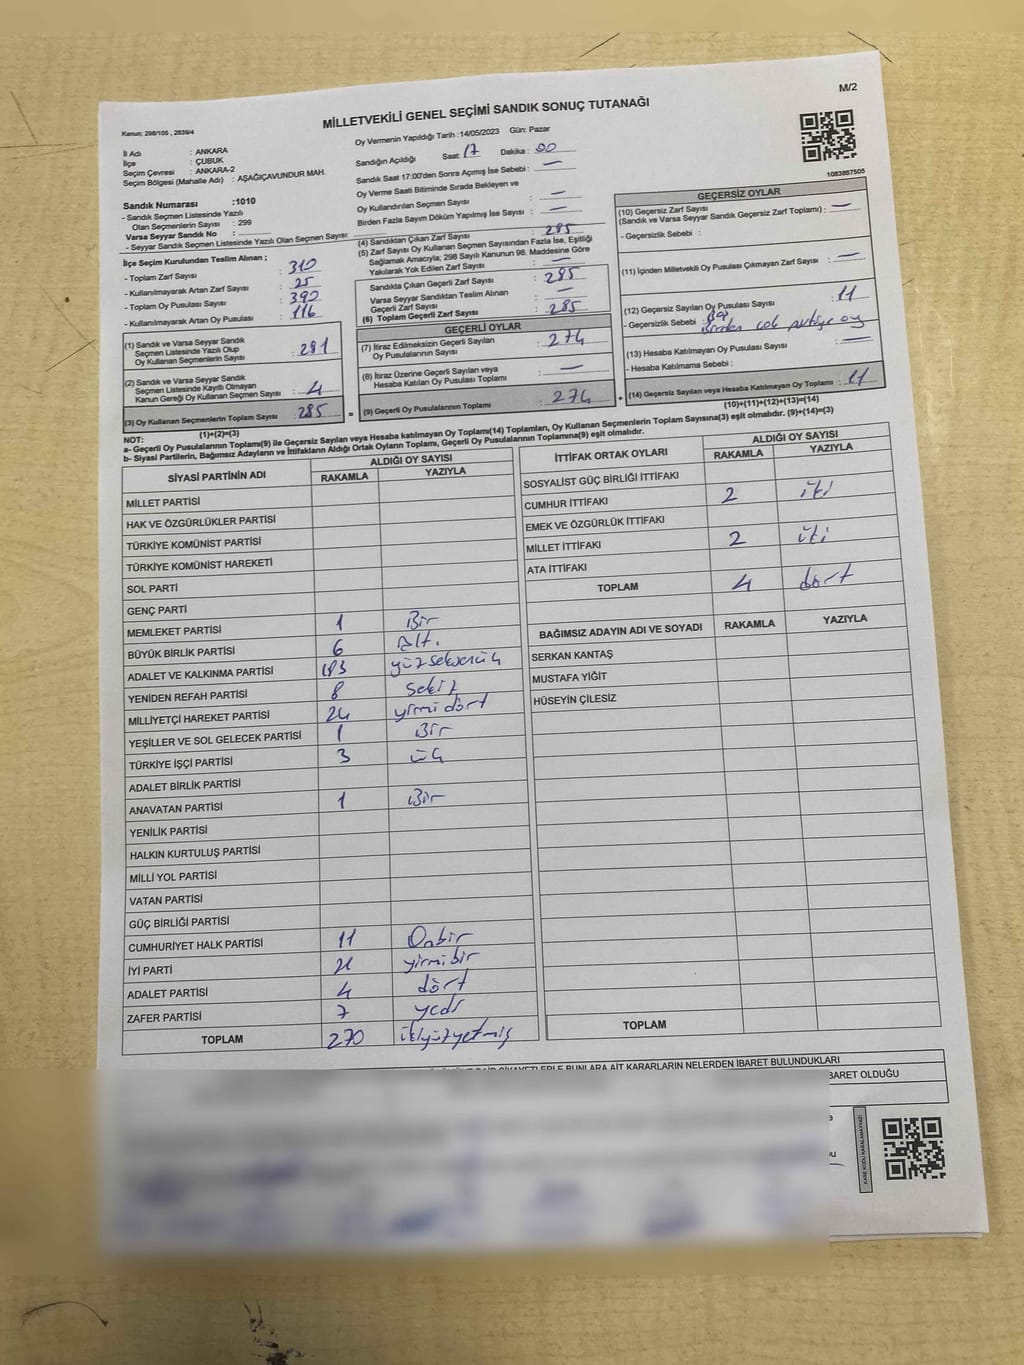 M/2
MİLLETVEKİLİ GENEL SEÇİMİ SANDIK SONUÇ TUTANAĞI
Kanun: 298/105 , 2839/4
Oy Vermenin Yapıldığı Tarih :14/05/2023 Gün: Pazar
İl Adı : ANKARA
İlçe : ÇUBUK
Seçim Çevresi : ANKARA-2
Seçim Bölgesi (Mahalle Adı) : AŞAĞIÇAVUNDUR MAH.
Sandığın Açıldığı Saat: 17 Dakika : 00
Sandık Saat 17:00'den Sonra Açımış İse Sebebi : —
Oy Verme Saati Bitiminde Sırada Bekleyen ve
Oy Kullandırılan Seçmen Sayısı : —
Birden Fazla Sayım Döküm Yapılmış İse Sayısı : —
1083887505
Sandık Numarası :1010
- Sandık Seçmen Listesinde Yazılı
Olan Seçmenlerin Sayısı : 299
Varsa Seyyar Sandık No :
- Seyyar Sandık Seçmen Listesinde Yazılı Olan Seçmen Sayısı:
İlçe Seçim Kurulundan Teslim Alınan ;
- Toplam Zarf Sayısı : 310
- Kullanılmayarak Artan Zarf Sayısı : 25
- Toplam Oy Pusulası Sayısı : 390
- Kullanılmayarak Artan Oy Pusulası : 116
(1) Sandık ve Varsa Seyyar Sandık
Seçmen Listesinde Yazılı Olup
Oy Kullanan Seçmenlerin Sayısı : 281
(2) Sandık ve Varsa Seyyar Sandık
Seçmen Listesinde Kayıtlı Olmayan
Kanun Gereği Oy Kullanan Seçmen Sayısı : 4
(3) Oy Kullanan Seçmenlerin Toplam Sayısı : 285
(1)+(2)=(3)
(4) Sandıktan Çıkan Zarf Sayısı : 285
(5) Zarf Sayısı Oy Kullanan Seçmen Sayısından Fazla İse, Eşitliği
Sağlamak Amacıyla; 298 Sayılı Kanunun 98. Maddesine Göre
Yakılarak Yok Edilen Zarf Sayısı : —
Sandıkta Çıkan Geçerli Zarf Sayısı : 285
Varsa Seyyar Sandıktan Teslim Alınan
Geçerli Zarf Sayısı : —
(6) Toplam Geçerli Zarf Sayısı : 285
GEÇERLİ OYLAR
(7) İtiraz Edilmeksizin Geçerli Sayılan
Oy Pusulalarının Sayısı : 274
(8) İtiraz Üzerine Geçerli Sayılan veya
Hesaba Katılan Oy Pusulası Toplamı : —
= (9) Geçerli Oy Pusulalarının Toplamı : 274
GEÇERSİZ OYLAR
(10) Geçersiz Zarf Sayısı
(Sandık ve Varsa Seyyar Sandık Geçersiz Zarf Toplamı) : —
- Geçersizlik Sebebi :
(11) İçinden Milletvekili Oy Pusulası Çıkmayan Zarf Sayısı : —
(12) Geçersiz Sayılan Oy Pusulası Sayısı : 11
- Geçersizlik Sebebi : Boş
Birden çok partiye oy
(13) Hesaba Katılmayan Oy Pusulası Sayısı : —
- Hesaba Katılmama Sebebi :
+ (14) Geçersiz Sayılan veya Hesaba Katılmayan Oy Toplamı : 11
(10)+(11)+(12)+(13)=(14)
NOT:
a- Geçerli Oy Pusulalarının Toplamı(9) ile Geçersiz Sayılan veya Hesaba katılmayan Oy Toplamı(14) Toplamları, Oy Kullanan Seçmenlerin Toplam Sayısına(3) eşit olmalıdır. (9)+(14)=(3)
b- Siyasi Partilerin, Bağımsız Adayların ve İttifakların Aldığı Ortak Oyların Toplamı, Geçerli Oy Pusulalarının Toplamına(9) eşit olmalıdır.
SİYASİ PARTİNİN ADI ALDIĞI OY SAYISI
RAKAMLA YAZIYLA
MİLLET PARTİSİ
HAK VE ÖZGÜRLÜKLER PARTİSİ
TÜRKİYE KOMÜNİST PARTİSİ
TÜRKİYE KOMÜNİST HAREKETİ
SOL PARTİ
GENÇ PARTİ
MEMLEKET PARTİSİ 1 Bir
BÜYÜK BİRLİK PARTİSİ 6 Altı
ADALET VE KALKINMA PARTİSİ 183 yüzseksenüç
YENİDEN REFAH PARTİSİ 8 sekiz
MİLLİYETÇİ HAREKET PARTİSİ 24 yirmi dört
YEŞİLLER VE SOL GELECEK PARTİSİ 1 Bir
TÜRKİYE İŞÇİ PARTİSİ 3 üç
ADALET BİRLİK PARTİSİ
ANAVATAN PARTİSİ 1 Bir
YENİLİK PARTİSİ
HALKIN KURTULUŞ PARTİSİ
MİLLİ YOL PARTİSİ
VATAN PARTİSİ
GÜÇ BİRLİĞİ PARTİSİ
CUMHURİYET HALK PARTİSİ 11 Onbir
İYİ PARTİ 21 yirmibir
ADALET PARTİSİ 4 dört
ZAFER PARTİSİ 7 yedi
TOPLAM 270 ikiyüzyetmiş
İTTİFAK ORTAK OYLARI ALDIĞI OY SAYISI
RAKAMLA YAZIYLA
SOSYALİST GÜÇ BİRLİĞİ İTTİFAKI
CUMHUR İTTİFAKI 2 iki
EMEK VE ÖZGÜRLÜK İTTİFAKI
MİLLET İTTİFAKI 2 iki
ATA İTTİFAKI
TOPLAM 4 dört
BAĞIMSIZ ADAYIN ADI VE SOYADI RAKAMLA YAZIYLA
SERKAN KANTAŞ
MUSTAFA YİĞİT
HÜSEYİN ÇİLESİZ
TOPLAM
BUNLARA AİT KARARLARIN NELERDEN İBARET BULUNDUKLARI
BARET OLDUĞU